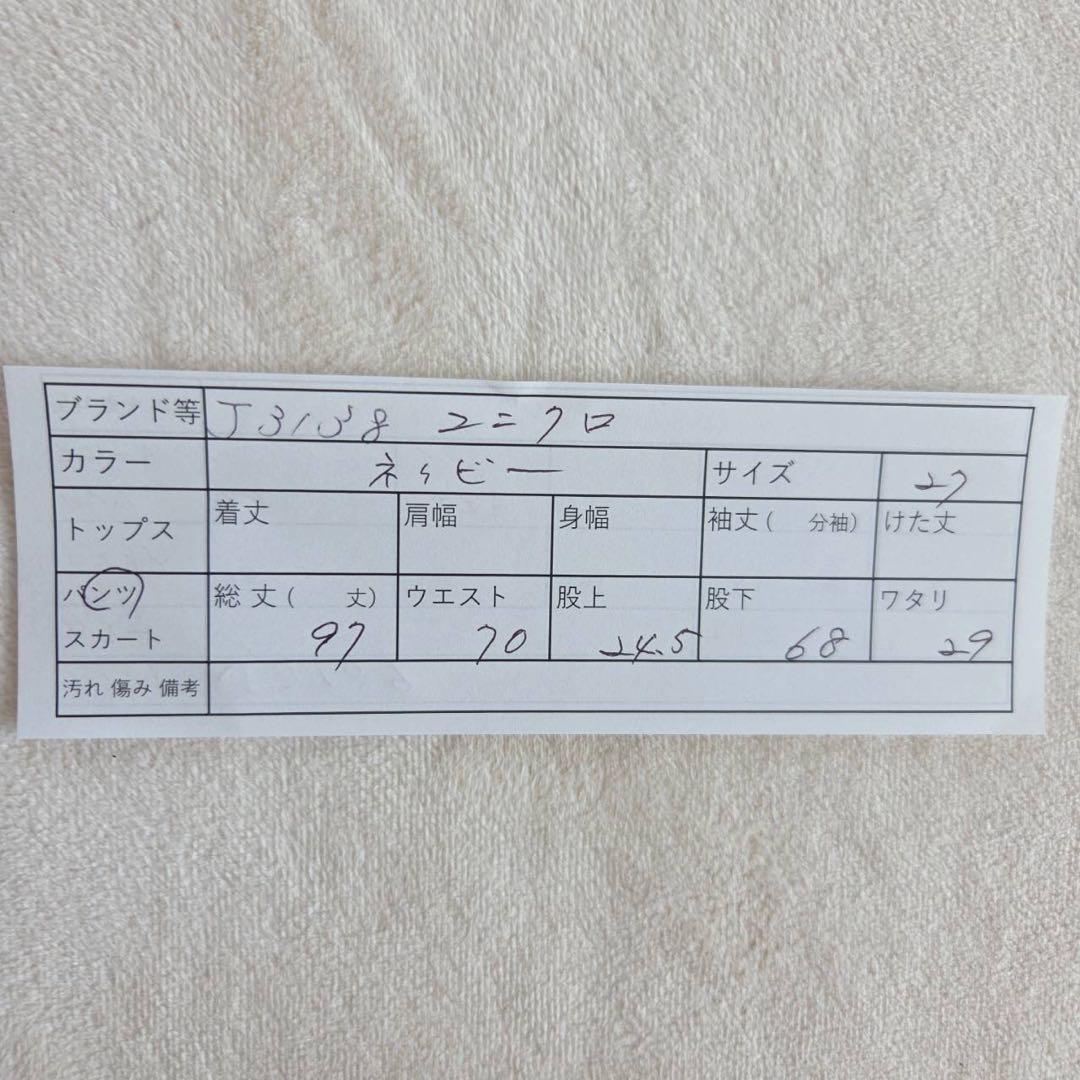 ブランド等 J3138 ユニクロ
カラー ネイビー サイズ 27
トップス 着丈 肩幅 身幅 袖丈( 分袖) けた丈
パンツ 総丈( 丈) ウエスト 股上 股下 ワタリ
スカート 97 70 24.5 68 29
汚れ 傷み 備考